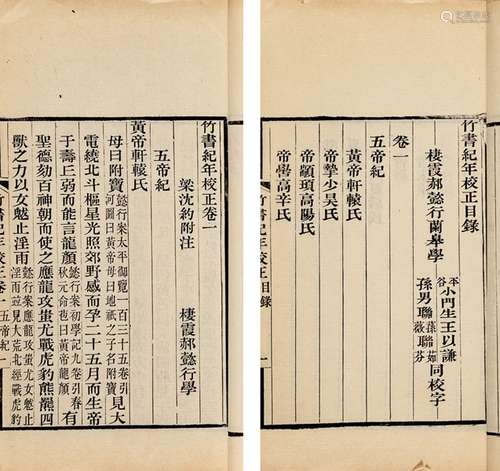 竹書紀年校正目錄
棲霞郝懿行蘭皋學
平谷小門生王以謙
孫男聯蓀聯茹聯薇聯芬同校字
卷一
五帝紀
黃帝軒轅氏
帝摯少昊氏
帝顓頊高陽氏
帝嚳高辛氏
竹書紀年校正目錄 一
竹書紀年校正卷一
梁沈約附注 棲霞郝懿行學
五帝紀
黃帝軒轅氏
母曰附寶懿行案太平御覽一百三十五卷引河圖曰黃帝母曰地祗之子名附寶見大
電繞北斗樞星光照郊野感而孕二十五月而生帝
于壽丘弱而能言龍顏懿行案初學記九卷引春秋元命苞曰黃帝龍顏有
聖德劾百神朝而使之應龍攻蚩尤戰虎豹熊羆四
獸之力以女魃止淫雨懿行案應龍攻蚩尤女魃止淫雨並見大荒北經戰虎豹
竹書紀年校正卷一 五帝紀 一